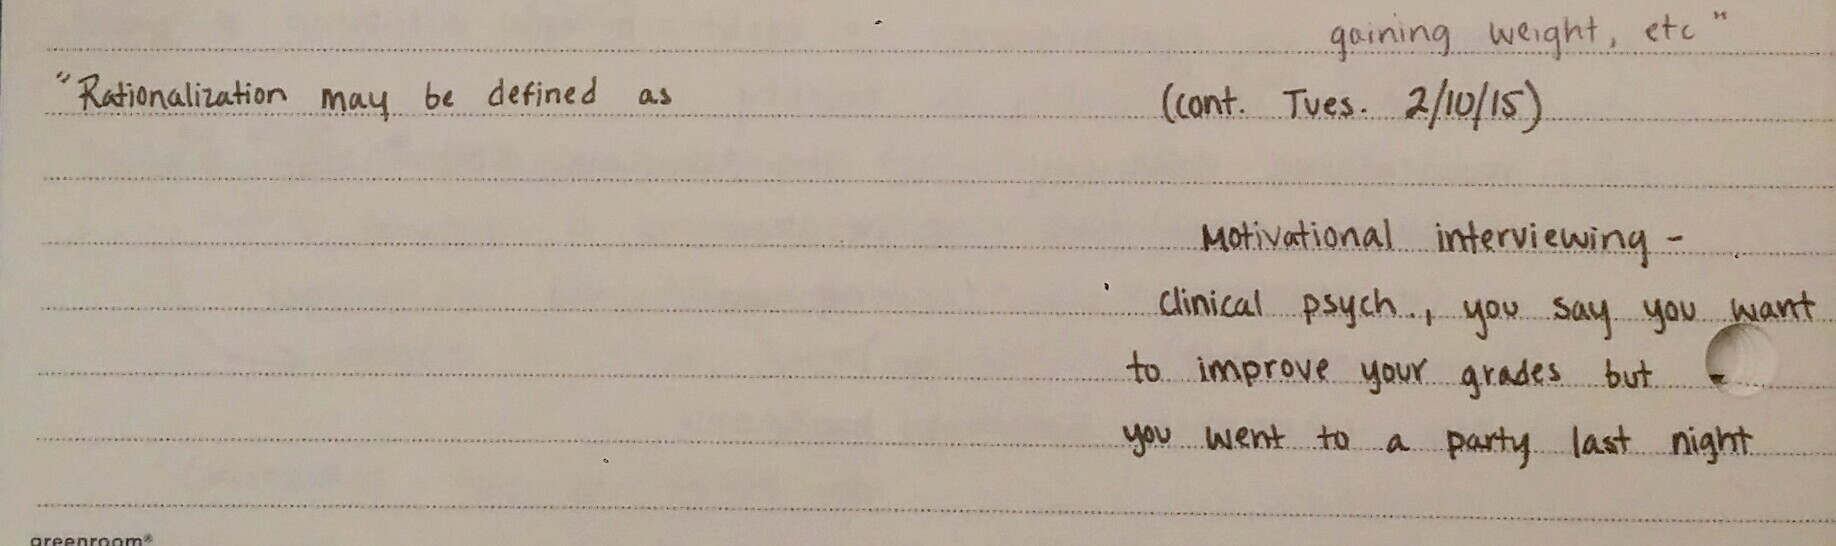 gaining weight, etc"
"Rationalization may be defined as
(cont. Tues. 2/10/15)
Motivational interviewing -
clinical psych., you say you want
to improve your grades but
you went to a party last night
greenroom®